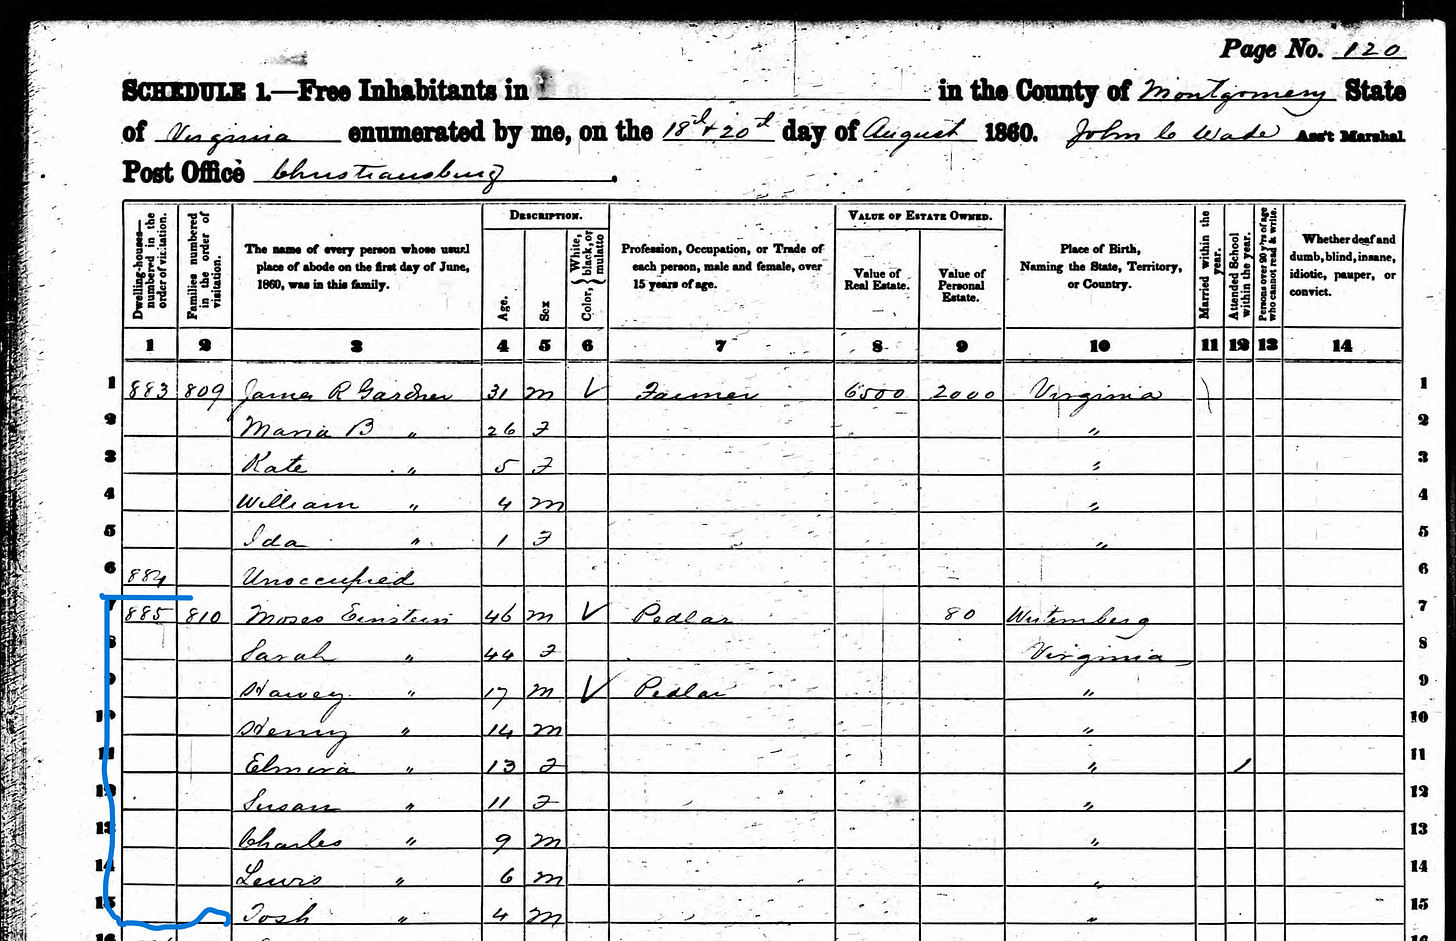 Page No. 120
SCHEDULE 1.—Free Inhabitants in in the County of Montgomery State
of Virginia enumerated by me, on the 18d & 20d day of August 1860. John C Wade Ass't Marshal
Post Office Christiansburg .
Dwelling-houses—numbered in the order of visitation.
Families numbered in the order of visitation.
The name of every person whose usual place of abode on the first day of June, 1860, was in this family.
DESCRIPTION.
Age.
Sex
Color, { White, black, or mulatto
Profession, Occupation, or Trade of each person, male and female, over 15 years of age.
VALUE OF ESTATE OWNED.
Value of Real Estate.
Value of Personal Estate.
Place of Birth, Naming the State, Territory, or Country.
Married within the year.
Attended School within the year.
Persons over 20 y'rs of age who cannot read & write.
Whether deaf and dumb, blind, insane, idiotic, pauper, or convict.
1 2 3 4 5 6 7 8 9 10 11 12 13 14
1 883 809 James R Gardner 31 m V Farmer 6500 2000 Virginia 1
2 Maria B " 26 F " 2
3 Kate " 5 F " 3
4 William " 4 m " 4
5 Ida " 1 F " 5
6 884 Unoccupied 6
7 885 810 Moses Einstein 46 m V Pedlar 80 Wutemberg 7
8 Sarah " 44 F Virginia 8
9 Harvey " 17 m V Pedlar " 9
10 Henny " 14 m " 10
11 Elmira " 13 F " 1 11
12 Susan " 11 F " 12
13 Charles " 9 m " 13
14 Lewis " 6 m " 14
15 Tosh " 4 m " 15
16 16